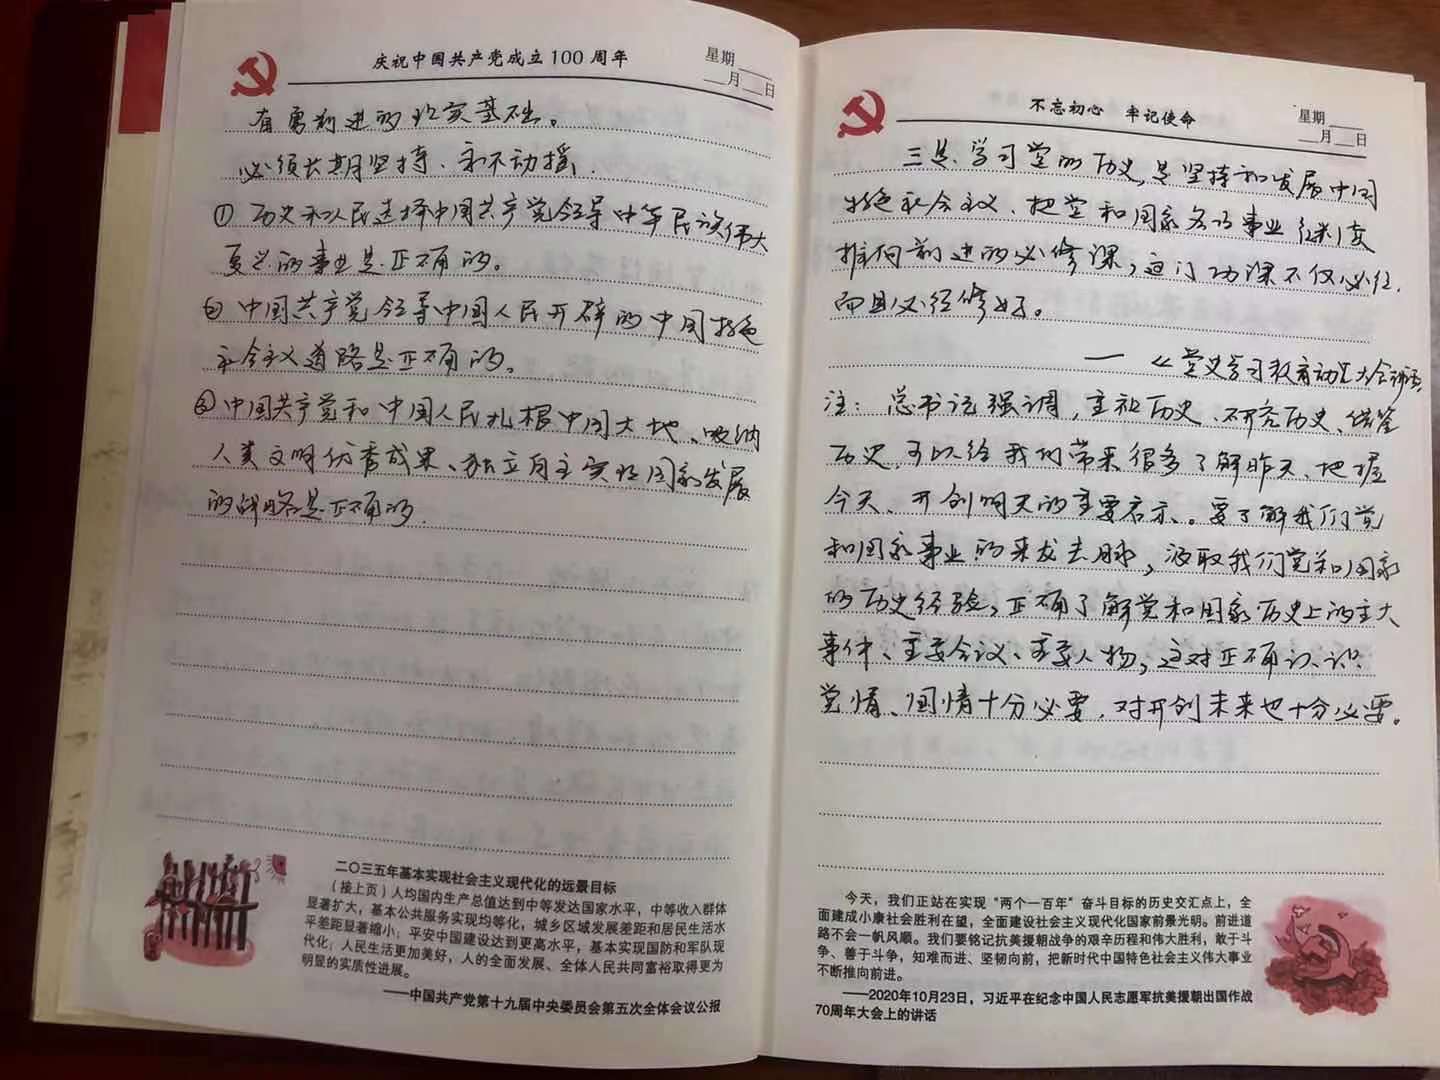 庆祝中国共产党成立100周年
星期
月 日
有勇前进的现实基础。
必须长期坚持、永不动摇.
① 历史和人民选择中国共产党领导中华民族伟大
复兴的事业是正确的。
② 中国共产党领导中国人民开辟的中国特色
社会主义道路是正确的。
③ 中国共产党和中国人民扎根中国大地、吸纳
人类文明优秀成果、独立自主实现国家发展
的战略是正确的.
二〇三五年基本实现社会主义现代化的远景目标
（接上页）人均国内生产总值达到中等发达国家水平，中等收入群体
显著扩大，基本公共服务实现均等化，城乡区域发展差距和居民生活水
平差距显著缩小；平安中国建设达到更高水平，基本实现国防和军队现
代化；人民生活更加美好，人的全面发展、全体人民共同富裕取得更为
明显的实质性进展。
——中国共产党第十九届中央委员会第五次全体会议公报
不忘初心 牢记使命
星期
月 日
三是、学习党的历史，是坚持和发展中国
特色社会主义、把党和国家各项事业继续
推向前进的必修课，这门功课不仅必修，
而且必须修好。
——《党史学习教育动员大会讲话》
注：总书记强调，重视历史、研究历史、借鉴
历史，可以给我们带来很多了解昨天、把握
今天、开创明天的重要启示。要了解我们党
和国家事业的来龙去脉，汲取我们党和国家
的历史经验，正确了解党和国家历史上的重大
事件、重要会议、重要人物，这对正确认识
党情、国情十分必要，对开创未来也十分必要。
今天，我们正站在实现“两个一百年”奋斗目标的历史交汇点上，全
面建成小康社会胜利在望，全面建设社会主义现代化国家前景光明。前进道
路不会一帆风顺。我们要铭记抗美援朝战争的艰辛历程和伟大胜利，敢于斗
争、善于斗争，知难而进、坚韧向前，把新时代中国特色社会主义伟大事业
不断推向前进。
——2020年10月23日，习近平在纪念中国人民志愿军抗美援朝出国作战
70周年大会上的讲话